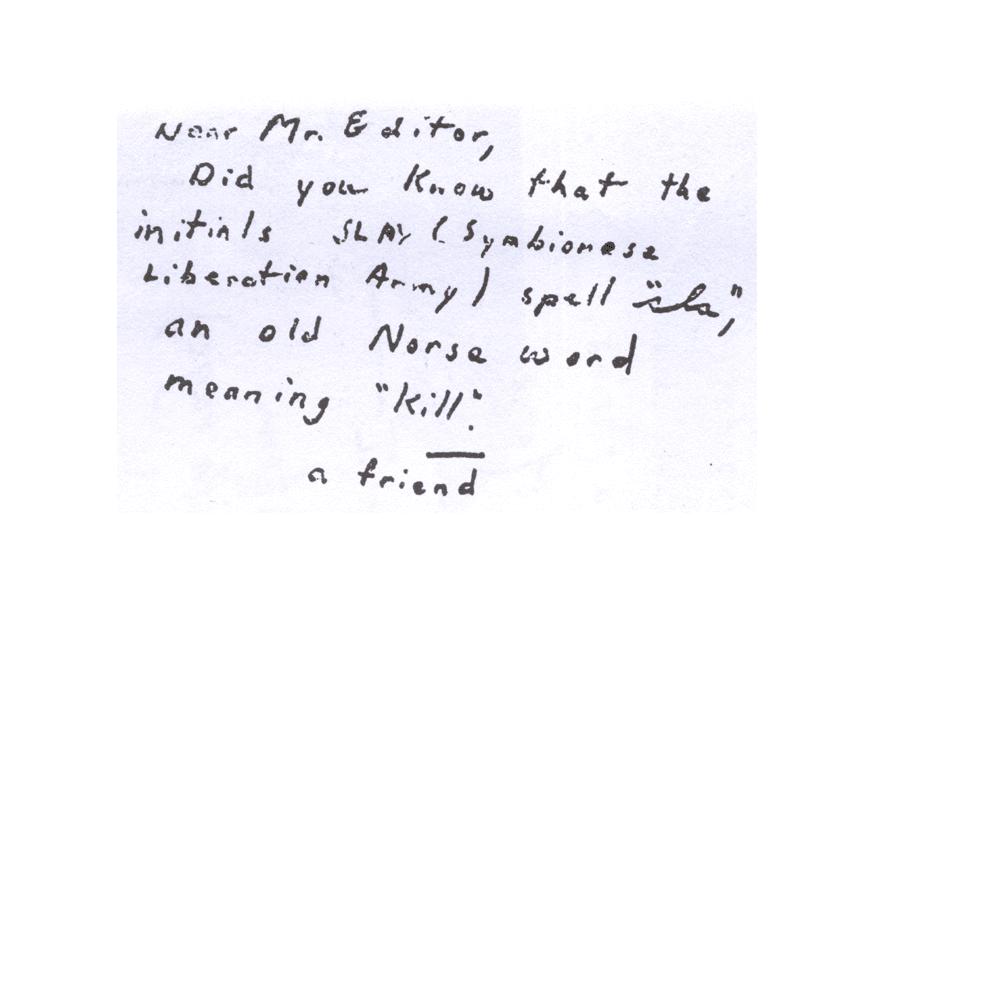 Dear Mr. Editor,
Did you Know that the
initials SLAY (Symbionese
Liberation Army) spell "sla",
an old Norse word
meaning "kill".
a friend